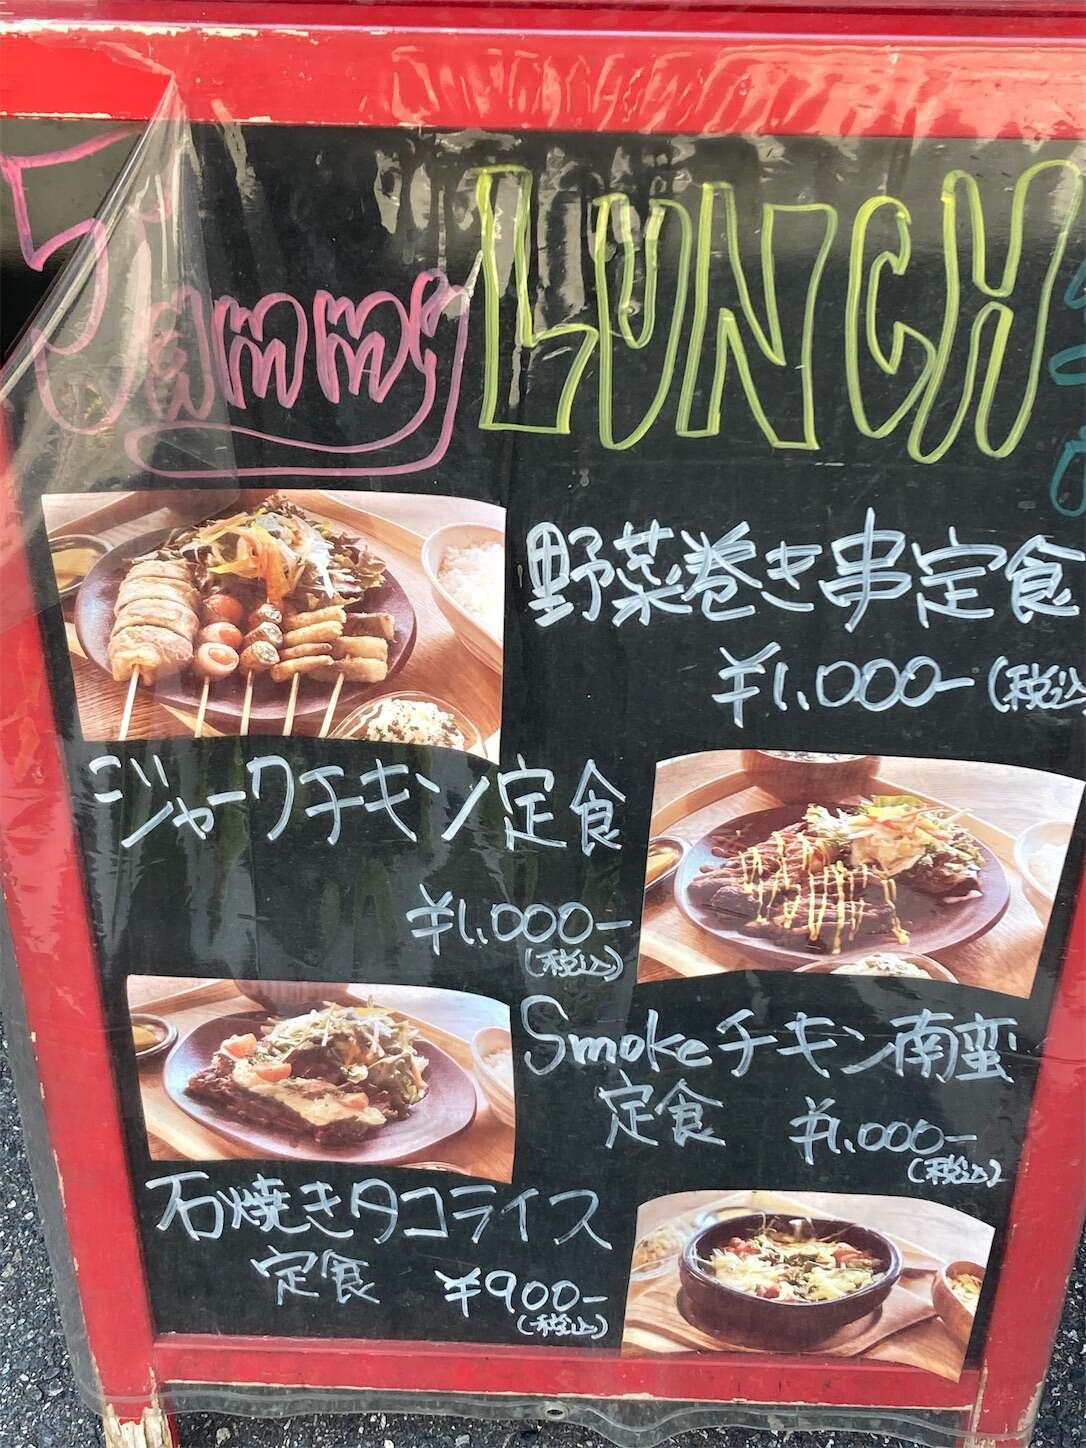 Jammy LUNCH
野菜巻き串定食
¥1,000-(税込
ジャークチキン定食
¥1,000-
(税込)
Smokeチキン南蛮
定食 ¥1,000-
(税込)
石焼きタコライス
定食 ¥900-
(税込)